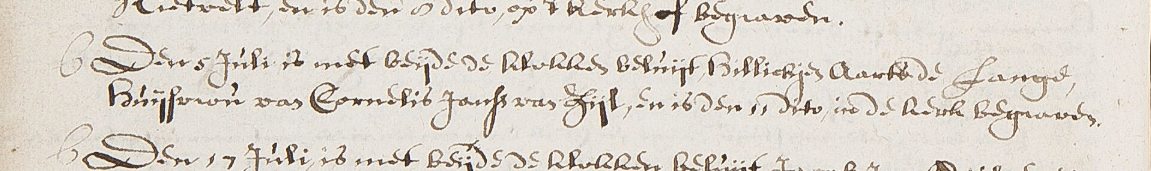 en is den 8 dito, op 't kerkhof begraven.
b Den 5 Juli is met beijde de klokken beluijt Hillichjen Aarts de Lange,
Huijsvrou van Cornelis Jansz van Zijl, en is den 11 dito, in de kerk begraven.
b Den 17 Juli, is met beijde de klokken beluijt